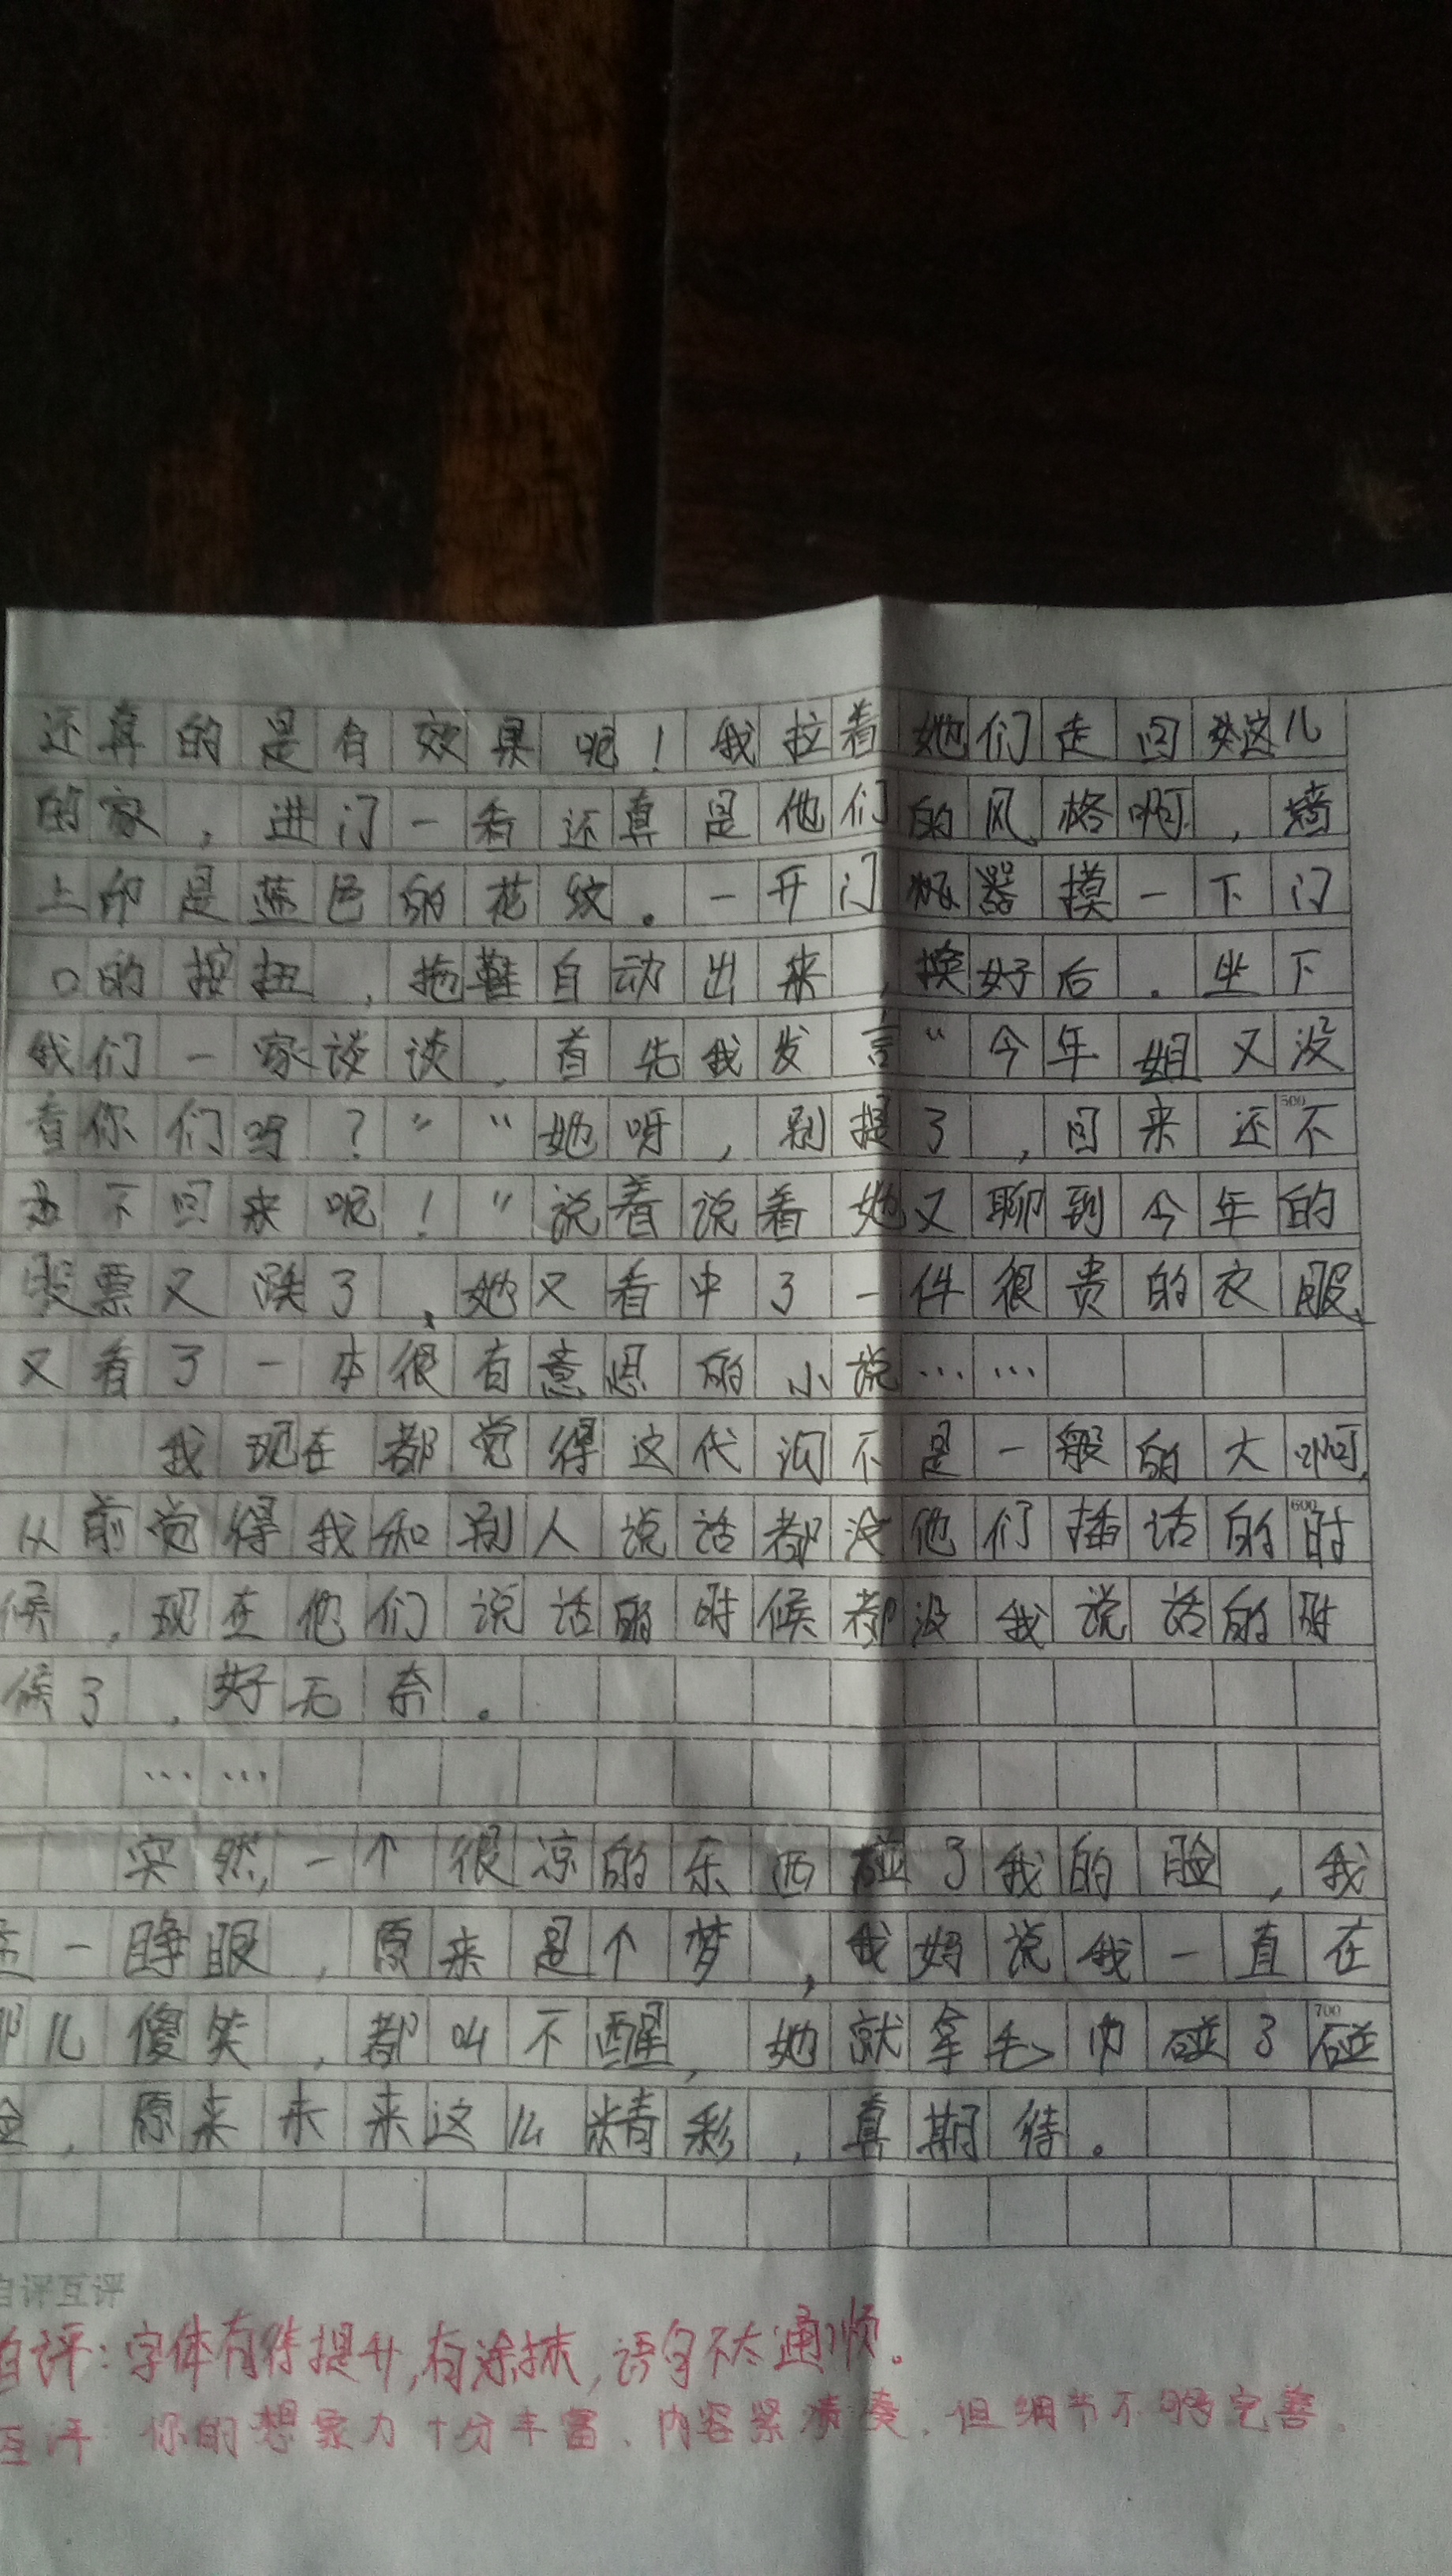 还真的是有效果呢！我拉着她们走回这儿
的家，进门一看还真是他们的风格啊，墙
上印是蓝色的花纹。一开门机器摸一下门
口的按扭，拖鞋自动出来，换好后．坐下
我们一家谈谈，首先我发言“今年姐又没
查你们吗？”“她呀，别提了，回来还不
如不回来呢！”说着说着她又聊到今年的
股票又跌了、她又看中了一件很贵的衣服、
又看了一本很有意思的小说……
我现在都觉得这代沟不是一般的大啊，
从前觉得我和别人说话都没他们插话的时
候，现在他们说话的时候都没我说话的时
候了，好无奈。
……
突然，一个很凉的东西碰了我的脸，我
一睁眼，原来是个梦，我妈说我一直在
那儿傻笑，都叫不醒，她就拿毛巾碰了碰
脸，原来未来这么精彩，真期待。
500
600
700
自评互评
自评：字体有待提升，有涂抹，语句不太通顺。
互评 你的想象力十分丰富、内容紧凑，但细节不够完善、